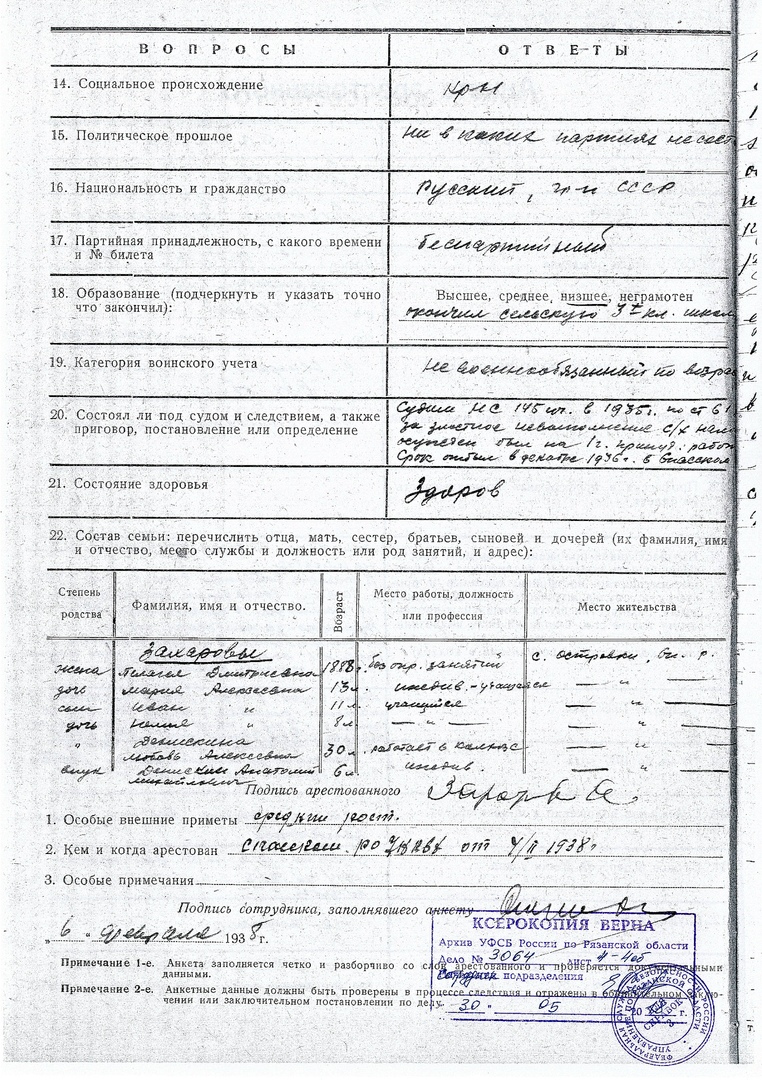 ВОПРОСЫ ОТВЕТЫ
14. Социальное происхождение кр-н
15. Политическое прошлое ни в каких партиях не сост
16. Национальность и гражданство Русский, гр-н СССР
17. Партийная принадлежность, с какого времени
и № билета беспартийный
18. Образование (подчеркнуть и указать точно Высшее, среднее, низшее, неграмотен
что закончил): окончил сельскую 3х кл. школ
19. Категория воинского учета не военнообязанный по возра
20. Состоял ли под судом и следствием, а также
приговор, постановление или определение
Судим НС 145 уч. в 1935г. по ст 61
за злостное невыполнение с/х нал
осужден был на 1 г. принуд. работ
Срок отбыл в декабре 1936г. в Спасском
21. Состояние здоровья Здоров
22. Состав семьи: перечислить отца, мать, сестер, братьев, сыновей и дочерей (их фамилия, имя
и отчество, место службы и должность или род занятий, и адрес):
Степень родства Фамилия, имя и отчество. Возраст Место работы, должность или профессия Место жительства
Захаровы
жена Пелагея Дмитриевна 1888г. без опр. занятий с. Островки, Сп. р.
дочь Мария Алексеевна 13 л. иждив. - учащаяся — " —
сын Иван " 11 л. учащийся — " —
дочь " 8 л. — " — — " —
" Денискина
Любовь Алексеевна 30 л. работает в колхозе — " —
внук Денискин Анатолий 6 л. иждив. — " —
Михайлович
Подпись арестованного
1. Особые внешние приметы средний рост.
2. Кем и когда арестован Спасским РО УНКВД от 4/II 1938г
3. Особые примечания
Подпись сотрудника, заполнявшего анкету
„6" февраля 1938г.
Примечание 1-е. Анкета заполняется четко и разборчиво со слов арестованного и проверяется документальными
данными.
Примечание 2-е. Анкетные данные должны быть проверены в процессе следствия и отражены в обвинительном заклю-
чении или заключительном постановлении по делу.
КСЕРОКОПИЯ ВЕРНА
Архив УФСБ России по Рязанской области
Дело № 3064 лист 4-4об
подразделения
„30" 05 20 г.